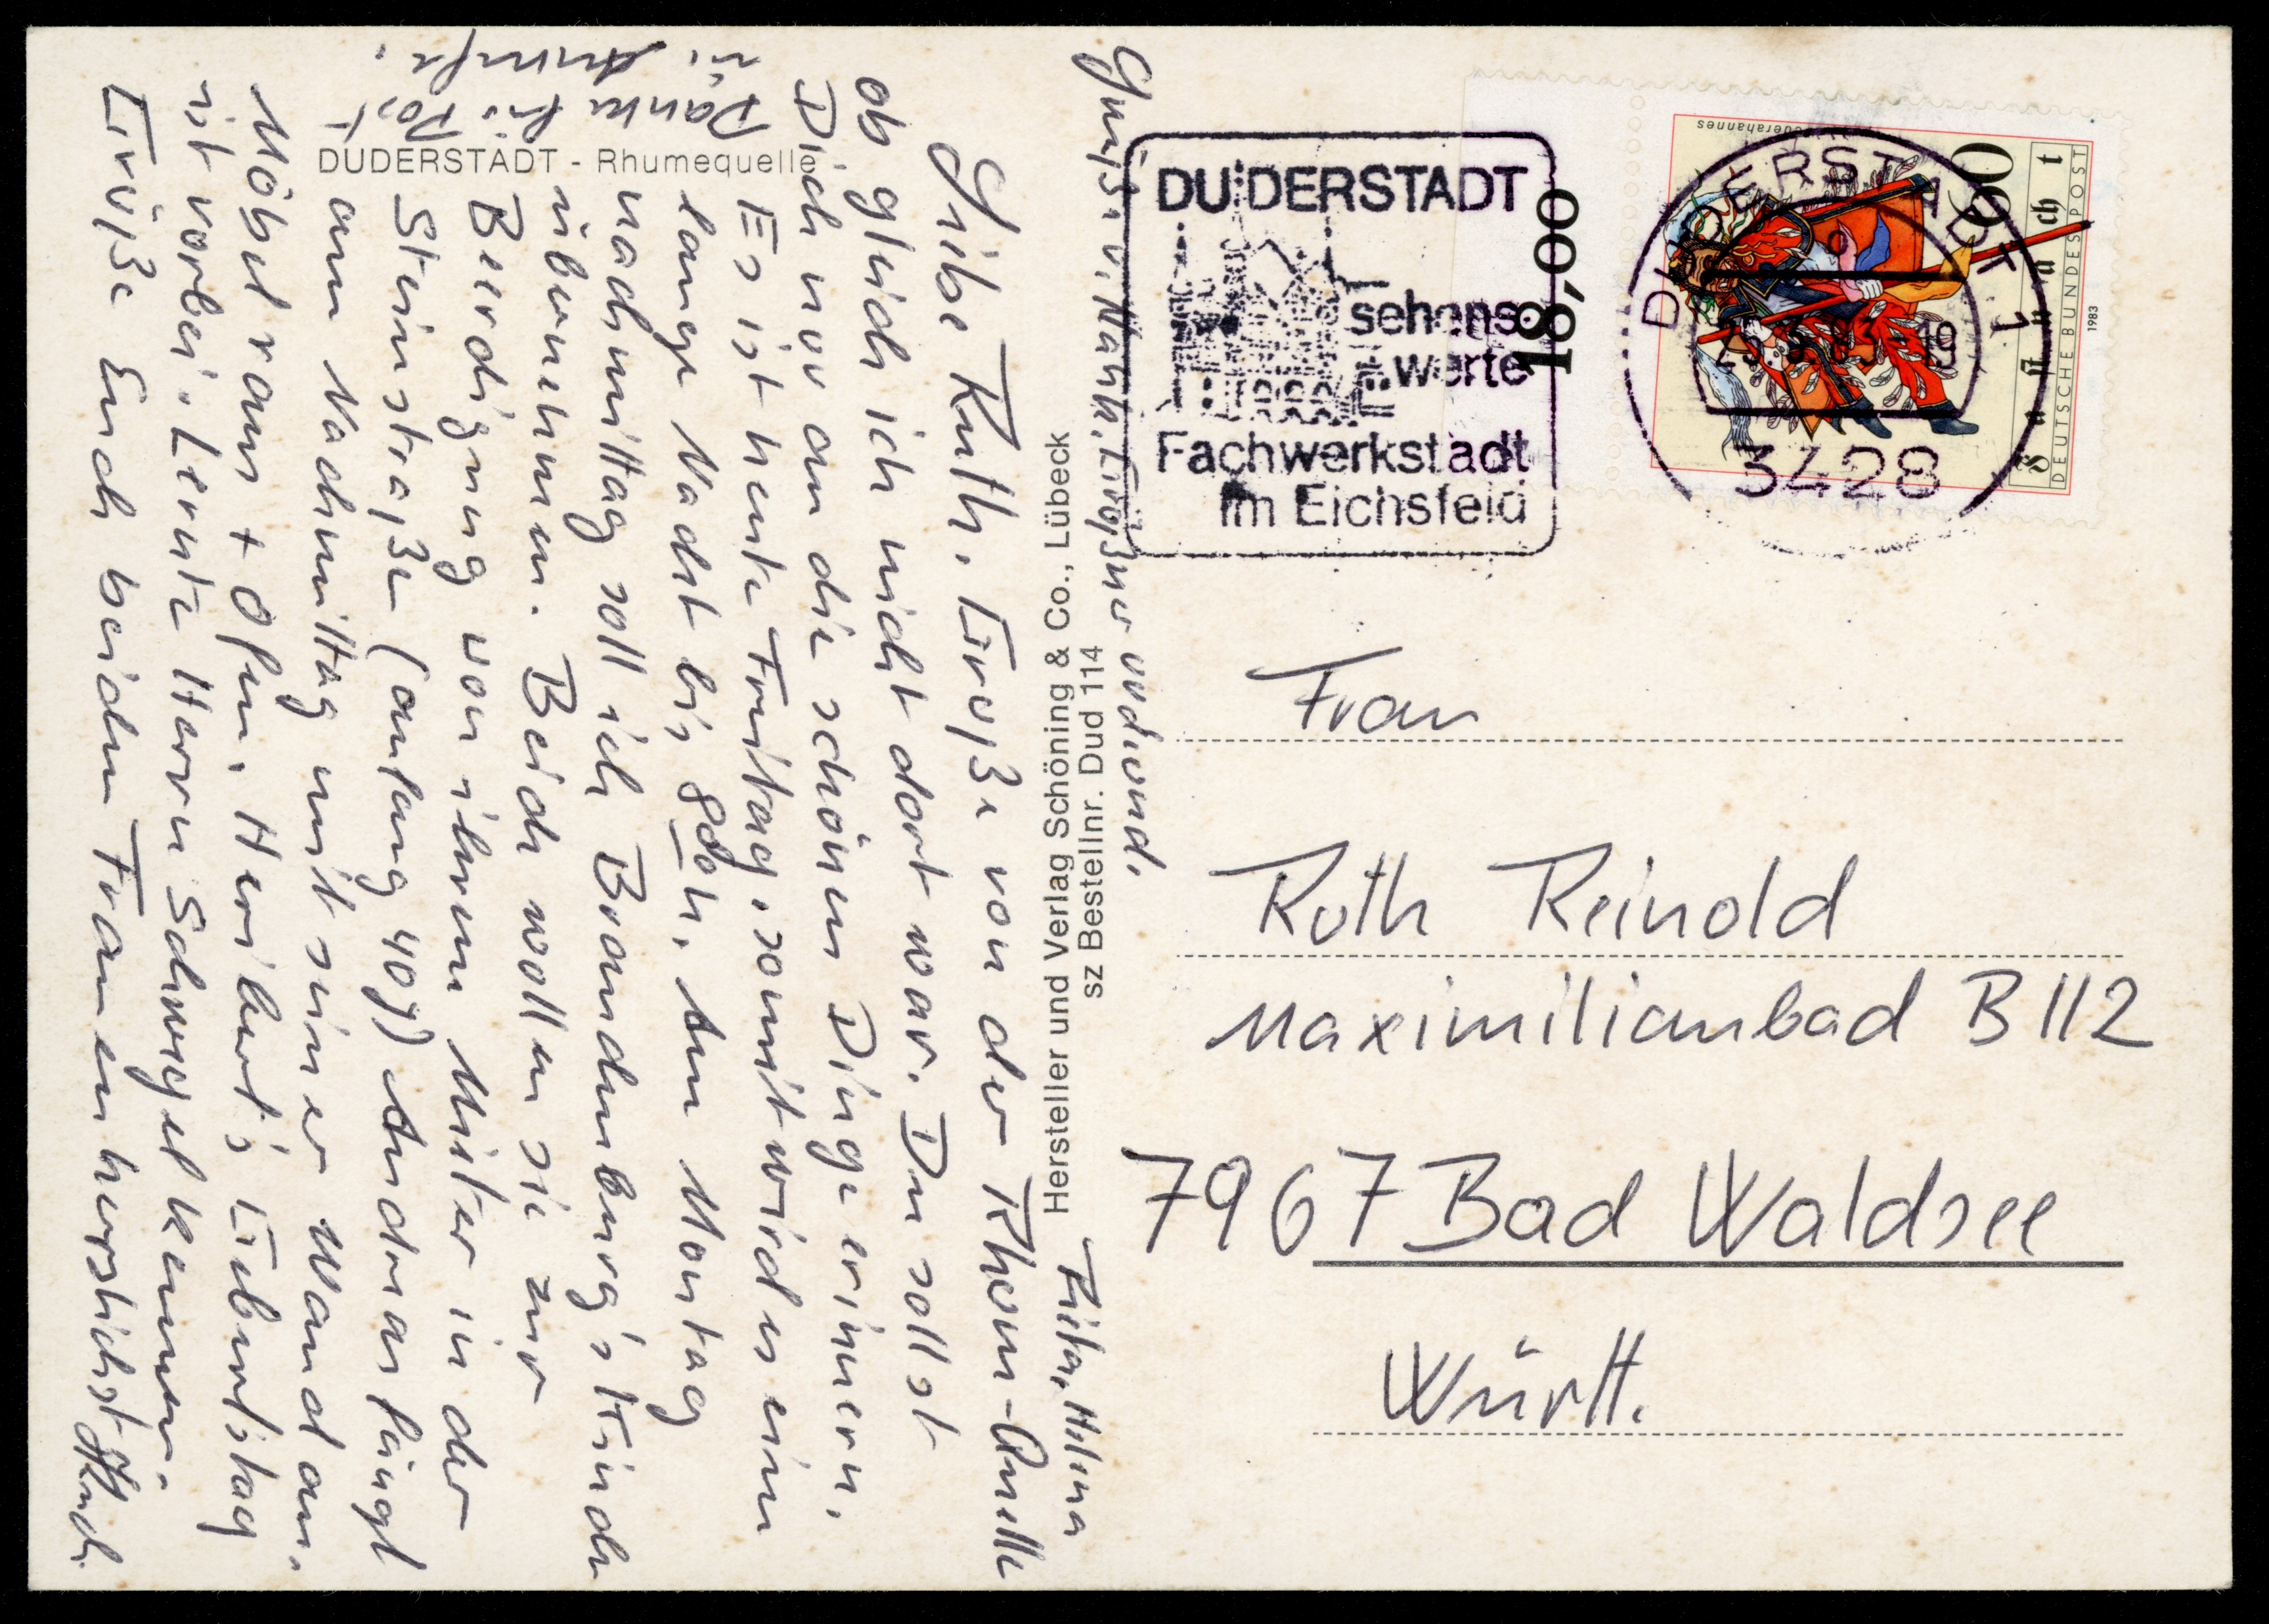 DUDERSTADT - Rhumequelle
Liebe Ruth, Grüße von der Rhum-Quelle
obgleich ich nicht dort war. Du sollst
Dich nur an die schönen Dinge erinnern.
Es ist heute Freitag, somit wird es eine
lange Nacht bis 8 h. Am Montag
nachmittag soll ich Brandenburg's Kinder
übernehmen. Beide wollen sie zur
Beerdigung von ihrem Mieter in der
Steinstraße (anfang 40 J) Andreas fängt
am Nachmittag mit seiner Wand an.
Möbel raus + Ofen. Heribert's Geburtstag
ist vorbei. Lernte Herrn Schwegel kennen.
Grüße Euch beiden Framen herzlichst
Danke f. Post
u. Anrufe.
Grüße v. Nana, Größner
Rita, Helena
Hersteller und Verlag Schöning & Co., Lübeck
sz Bestellnr. Dud 114
DUDERSTADT
sehens-
werte
Fachwerkstadt
im Eichsfeld
18,00
DUDERSTADT 1
3428
Federahannes
80
Fasnacht
DEUTSCHE BUNDESPOST
1983
Frau
Ruth Reinold
Maximilianbad B 112
7967 Bad Waldsee
Württ.